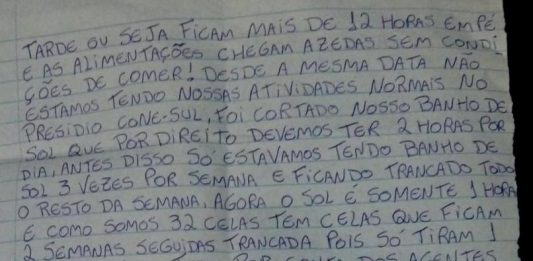 TARDE OU SEJA FICAM MAIS DE 12 HORAS EMPÉ
E AS ALIMENTAÇÕES CHEGAM AZEDAS SEM CONDI
ÇÕES DE COMER! DESDE A MESMA DATA NÃO
ESTAMOS TENDO NOSSAS ATIVIDADES NORMAIS NO
PRESIDIO CONE-SUL, FOI CORTADO NOSSO BANHO DE
SOL QUE POR DIREITO DEVEMOS TER 2 HORAS POR
DIA, ANTES DISSO SÓ ESTAVAMOS TENDO BANHO DE
SOL 3 VEZES POR SEMANA E FICANDO TRANCADO TODO
O RESTO DA SEMANA, AGORA O SOL É SOMENTE 1 HORA
E COMO SOMOS 32 CELAS TEM CELAS QUE FICAM
2 SEMANAS SEGUIDAS TRANCADA POIS SÓ TIRAM 1
POR CONTA DOS AGENTES